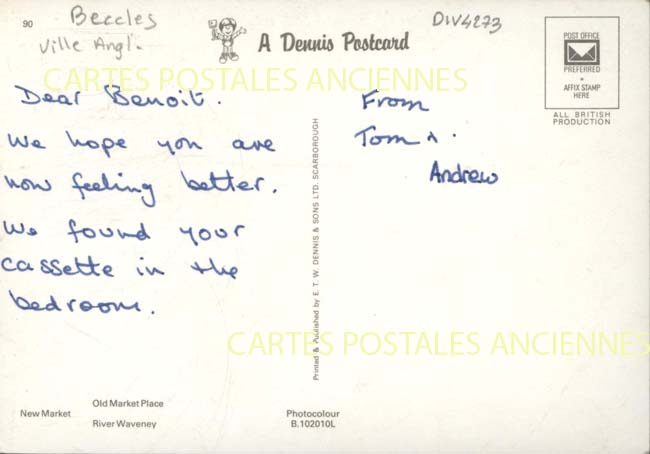 90
Beccles
Ville Angl.
DIV4273
A Dennis Postcard
POST OFFICE
PREFERRED
AFFIX STAMP
HERE
ALL BRITISH
PRODUCTION
CARTES POSTALES ANCIENNES
Dear Benoit.
We hope you are
now feeling better.
We found your
cassette in the
bedroom.
From
Tom &.
Andrew
Printed & Published by E. T. W. DENNIS & SONS LTD. SCARBOROUGH
CARTES POSTALES ANCIENNES
New Market
Old Market Place
River Waveney
Photocolour
B.102010L